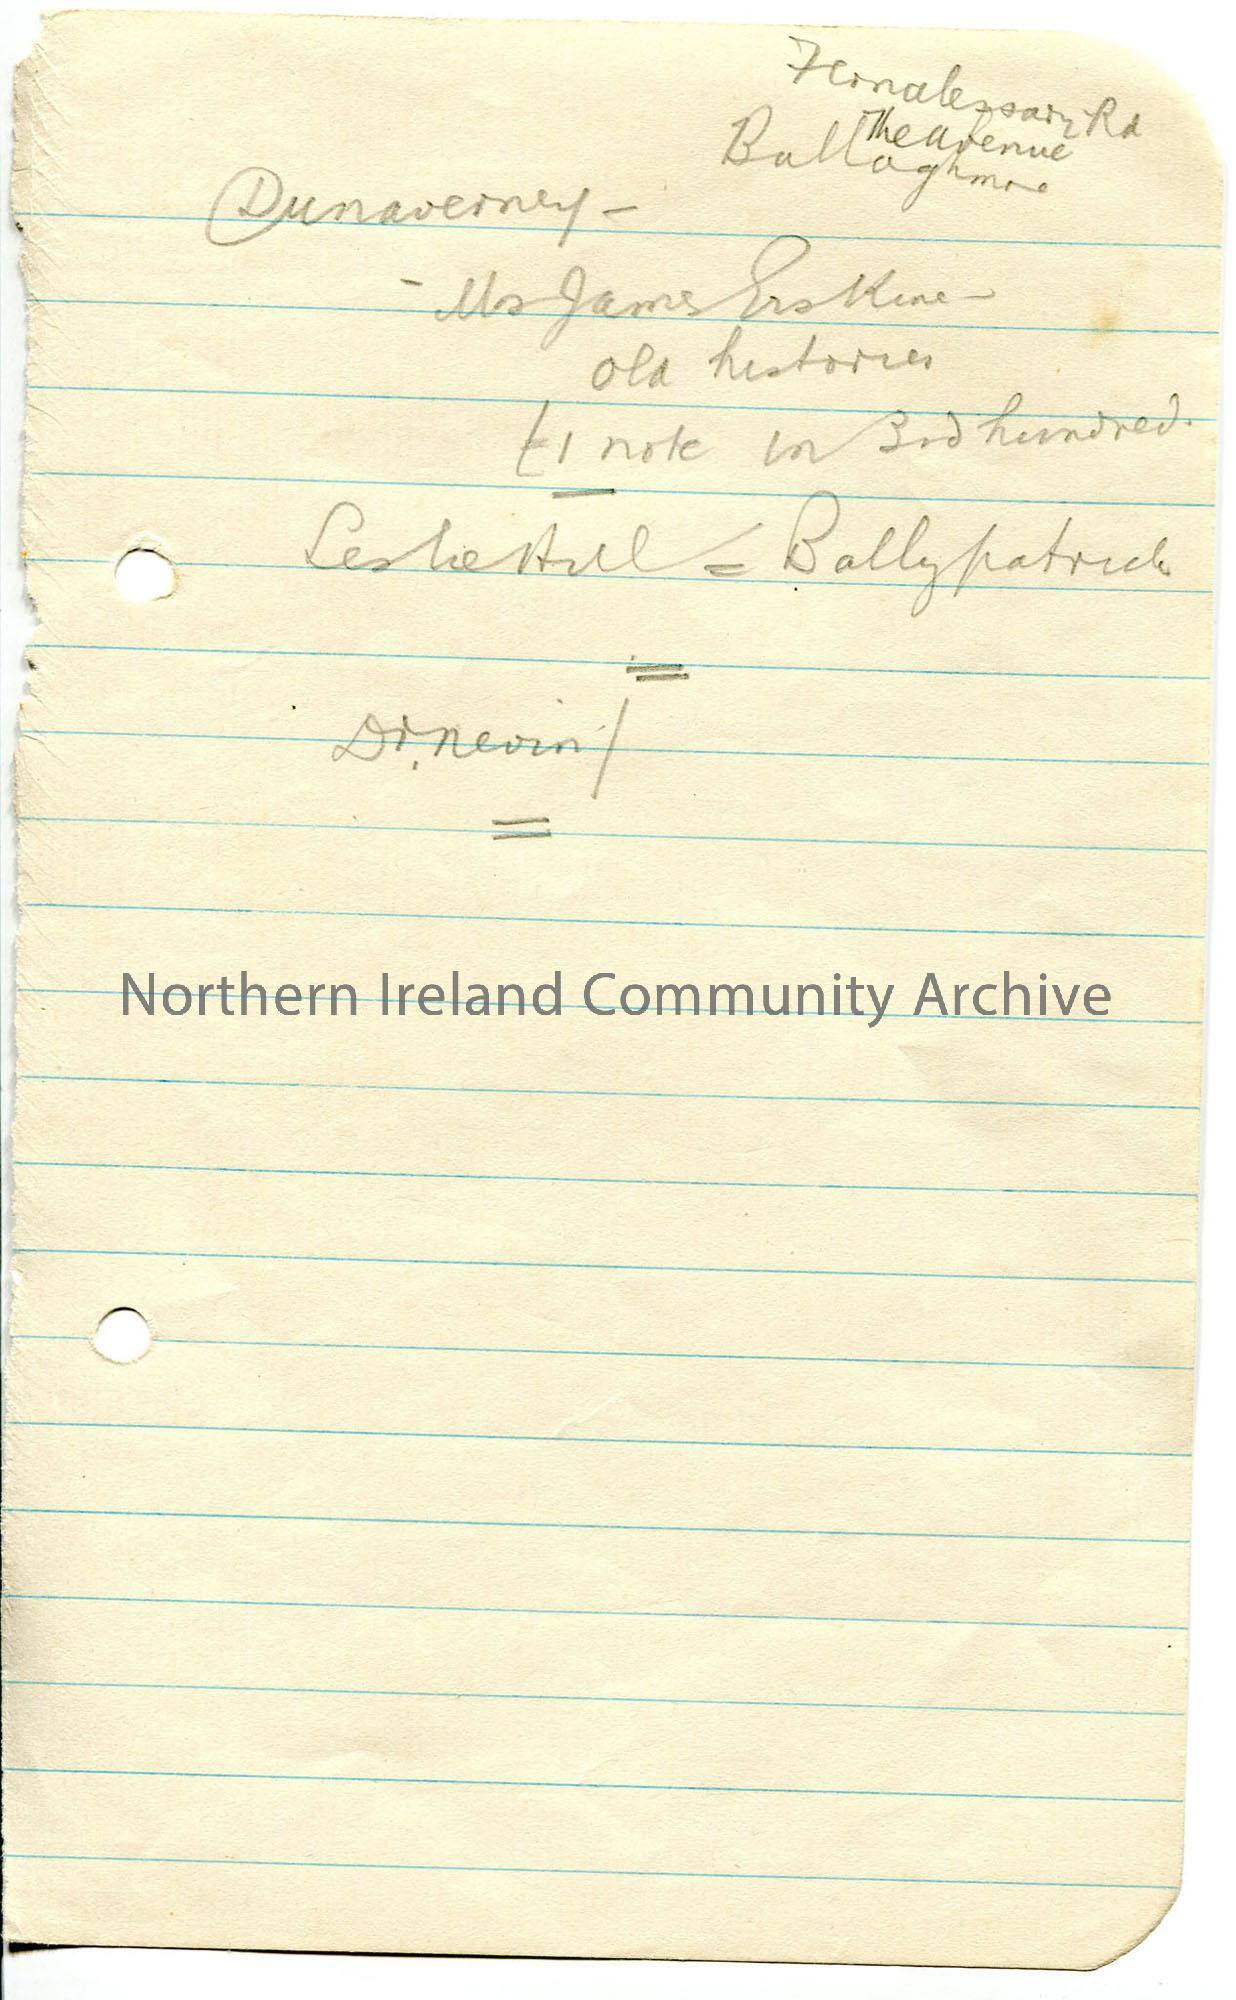 Rd
The avenue
Ballaghmore
Dunaverney –
- Mr James Erskine –
old histories
£1 note in 3rd hundred.
Leslie Hill = Ballypatrick
Dr. Nevin /
Northern Ireland Community Archive